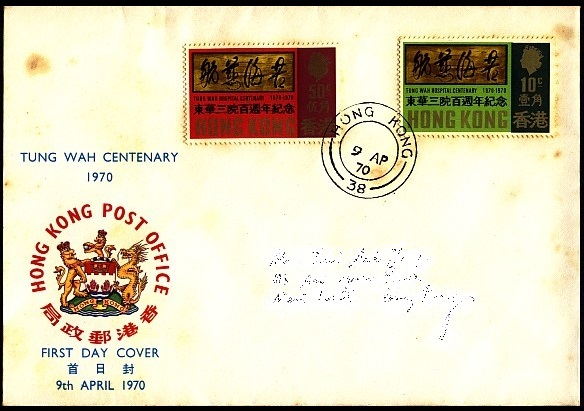 50c
伍角
TUNG WAH HOSPITAL CENTENARY 1870-1970
東華三院百週年紀念
HONG KONG 香港
10c
壹角
TUNG WAH HOSPITAL CENTENARY 1870-1970
東華三院百週年紀念
HONG KONG 香港
HONG KONG
9 AP
70
38
TUNG WAH CENTENARY
1970
HONG KONG POST OFFICE
HONG KONG
香港郵政局
FIRST DAY COVER
首日封
9th APRIL 1970